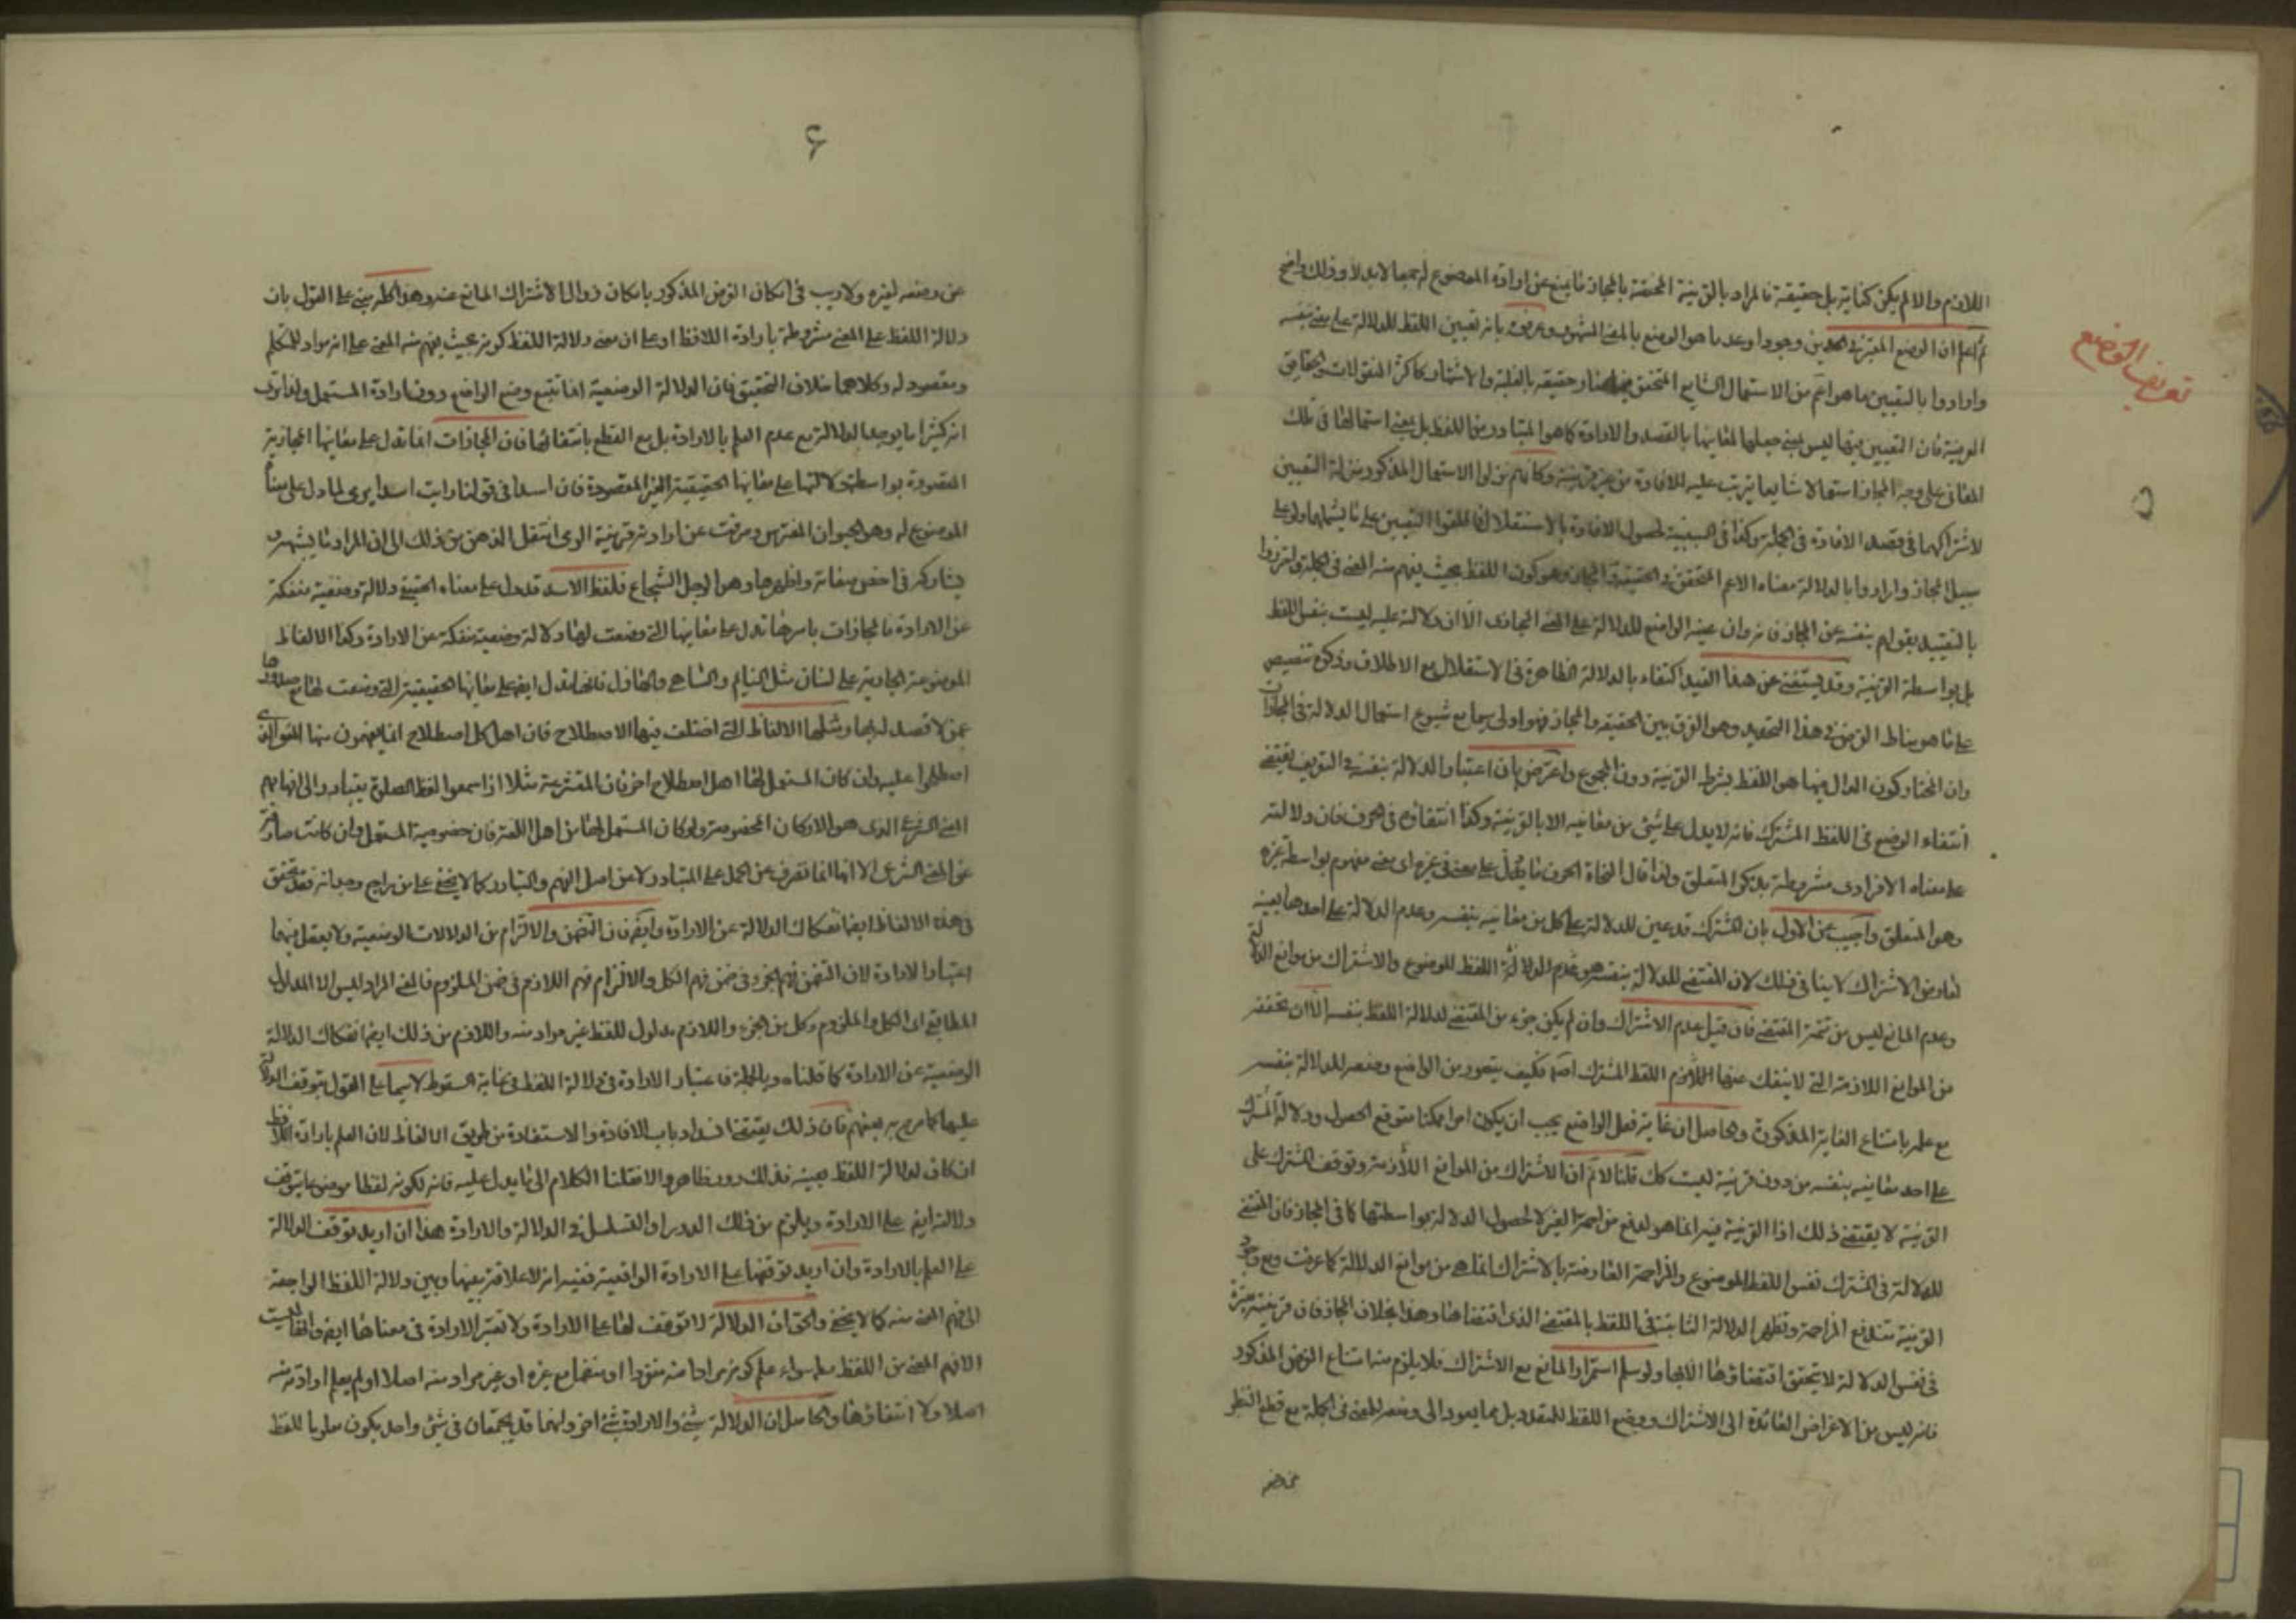 تعريف الوضع
اللازم والا لم يكن كناية بل حقيقة فالمراد بالقرينة المختصة بالمجاز ما يمنع عن ارادة الموضوع له جمعا لا بدلا وذلك واضح
ثم اعلم ان الوضع المعتبر في الحدين وجودا وعدما هو الوضع بالمعنى المشهور وعرفوه بانه تعيين اللفظ للدلالة على معنى بنفسه
وارادوا بالتعيين ما هو اعم من الاستعمال الشايع المتحقق فيما صار حقيقة بالغلبة والاشتهار كاكثر المنقولات والحقايق
العرفية فان التعيين فيها ليس بمعنى جعلها لمعانيها بالقصد والارادة كما هو المتبادر من اللفظ بل بمعنى استعمالها في تلك
المعاني على وجه المجاز استعمالا شايعا يترتب عليه للافادة من غير قرينة وكانهم نزلوا الاستعمال المذكور منزلة التعيين
لاشتراكهما في قصد الافادة في الجملة وكذا في السببية لحصول الافادة بالاستقلال فاطلقوا التعيين على ما يشملهما ولو على
سبيل المجاز وارادوا بالدلالة معناه الاعم المتحقق في الحقيقة والمجاز وهو كون اللفظ بحيث يفهم منه المعنى في الجملة واحترزوا
بالتقييد بقولهم بنفسه عن المجاز فانه وان عينه الواضع للدلالة على المعنى المجازي الا ان دلالته عليه ليست بنفس اللفظ
بل بواسطة القرينة وقد يستغنى عن هذا القيد اكتفاء بالدلالة الظاهرة في الاستقلال مع الاطلاق وذكره تنصيص
على ما هو مناط الغرض في هذا التحديد وهو الفرق بين الحقيقة والمجاز فهو اولى سيما مع شيوع استعمال الدلالة في المجازات
وان المختار كون الدال فيها هو اللفظ بشرط القرينة دون المجموع واعترض بان اعتبار الدلالة بنفسه في التعريف يقتضي
انتفاء الوضع في اللفظ المشترك فانه لا يدل على شيء من معانيه الا بالقرينة وكذا انتفاؤه في الحرف فان دلالته
على معناه الافرادي مشروطة بذكر المتعلق ولذا قال النحاة الحرف ما دل على معنى في غيره اي معنى مفهوم بواسطة غيره
وهو المتعلق واجيب عن الاول بان المشترك قد عين للدلالة على كل من معانيه بنفسه وعدم الدلالة على احدها بعينه
لعارض الاشتراك لا ينافي ذلك لان المقتضي للدلالة بنفسه هو اللفظ الموضوع والاشتراك من موانع الدلالة
وعدم المانع ليس من تتمة المقتضي فان قيل عدم الاشتراك وان لم يكن جزء من المقتضي لدلالة اللفظ بنفسه الا ان تحققه
من الموانع اللازمة التي لا ينفك عنها اللفظ المشترك اصلا فكيف يتصور من الواضع وضعه للدلالة بنفسه
مع علمه بامتناع الغاية المذكورة والحاصل ان غاية فعل الواضع يجب ان يكون امرا ممكنا متوقع الحصول ودلالة المشترك
على احد معانيه بنفسه من دون قرينة ليست كك قلنا لا نم ان الاشتراك من الموانع اللازمة وتوقف المشترك على
القرينة لا يقتضي ذلك اذ القرينة فيه انما هو لدفع مزاحمة الغير لا لحصول الدلالة بواسطتها كما في المجاز فان المقتضي
للدلالة في المشترك نفس اللفظ الموضوع والمزاحمة العارضة بالاشتراك انما هي من موانع الدلالة كما عرفت ومع وجود
القرينة تندفع المزاحمة وتظهر الدلالة الثابتة في اللفظ بالمقتضي الذي اقتضاها وهذا بخلاف المجاز فان قرينته معتبرة
في نفس الدلالة لا يتحقق اقتضاؤها الا بها ولو سلم استمرار المانع مع الاشتراك فلا يلزم منه امتناع الغرض المذكور
فانه ليس من الاغراض العائدة الى الاشتراك ووضع اللفظ للمتعدد بل مما يعود الى وضعه للمعنى في الجملة مع قطع النظر
عن وضعه
۶
عن وضعه لغيره ولا ريب في امكان الغرض المذكور بامكان زوال الاشتراك المانع عنه وهذا كله مبني على القول بان
دلالة اللفظ على المعنى مشروطة بارادة اللافظ او على ان معنى دلالة اللفظ كونه بحيث يفهم منه المعنى على انه مراد للمتكلم
ومقصود له وكلاهما خلاف التحقيق فان الدلالة الوضعية انما تتبع وضع الواضع دون ارادة المستعمل ولذا ترى
انه كثيرا ما يوجد الدلالة مع عدم العلم بالارادة بل مع القطع بانتفائها فان المجازات انما تدل على معانيها المجازية
المقصودة بواسطة دلالتها على معانيها الحقيقية الغير المقصودة فان اسدا في قولنا رايت اسدا يرمي لما دل على معناه
الموضوع له وهو الحيوان المفترس وصرفت عن ارادته قرينة الرمي انتقل الذهن من ذلك الى ان المراد ما يشبهه و
يشاركه في اخص صفاته واظهرها وهو الرجل الشجاع فلفظ الاسد قد دل على معناه الحقيقي دلالة وضعية منفكة
عن الارادة فالمجازات باسرها تدل على معانيها التي وضعت لها دلالة وضعية منفكة عن الارادة وكذا الالفاظ
الموضوعة الجارية على لسان مثل النايم والساهي والغافل فانها تدل ايضا على معانيها الحقيقية التي وضعت لها مع صدورها
عمن لا قصد له بها ومثلها الالفاظ التي اختلف فيها الاصطلاح فان اهل كل اصطلاح انما يفهمون منها المعنى الذي
اصطلحوا عليه وان كان المستعمل لها اهل اصطلاح اخر فان المتشرعة مثلا اذا سمعوا لفظ الصلوة يتبادر الى افهامهم
المعنى الشرعي الذي هو الاركان المخصوصة ولو كان المستعمل لها من اهل اللغة فان خصوصية المستعمل وان كانت صارفة
عن المعنى الشرعي الا انها انما تصرف عن الحمل على المتبادر لا عن اصل الفهم والتبادر كما لا يخفى على من راجع وجدانه فقد تحقق
في هذه الالفاظ ايضا انفكاك الدلالة عن الارادة وايضا فان التضمن والالتزام من الدلالات الوضعية ولا يعقل فيهما
اعتبار الارادة لان التضمن فهم الجزء في ضمن فهم الكل والالتزام فهم اللازم في ضمن الملزوم فالمعنى المراد ليس الا المدلول
المطابقي اي الكل والملزوم وكل من الجزء واللازم مدلول للفظ غير مراد منه واللازم من ذلك ايضا انفكاك الدلالة
الوضعية عن الارادة كما قلناه وبالجملة فاعتبار الارادة في دلالة اللفظ في غاية السقوط لا سيما على القول بتوقف الدلالة
عليها كما صرح به بعضهم فان ذلك يقتضي انسداد باب الافادة والاستفادة من طريق الالفاظ لان العلم بارادة اللافظ
ان كان لدلالة اللفظ بعينه فذلك دور ظاهر والا نقلنا الكلام الى ما يدل عليه فانه لكونه لفظا موضوعا يتوقف
دلالته ايضا على الارادة ويلزم من ذلك الدور او التسلسل في الدلالة والارادة هذا ان اريد توقف الدلالة
على العلم بالارادة وان اريد توقفها على الارادة الواقعية ففيه انه لا علاقة بينها وبين دلالة اللفظ الراجعة
الى فهم المعنى منه كما لا يخفى والحق ان الدلالة لا توقف لها على الارادة ولا تعتبر الارادة في معناها ايضا وانها ليست
الا فهم المعنى من اللفظ سواء علم كونه مرادا منه منفردا او منضما مع غيره او غير مراد منه اصلا او لم يعلم ارادته منه
اصلا ولا انتفاؤها والحاصل ان الدلالة شيء والارادة شيء اخر وانهما قد يجتمعان في شيء واحد يكون مدلولا للفظ